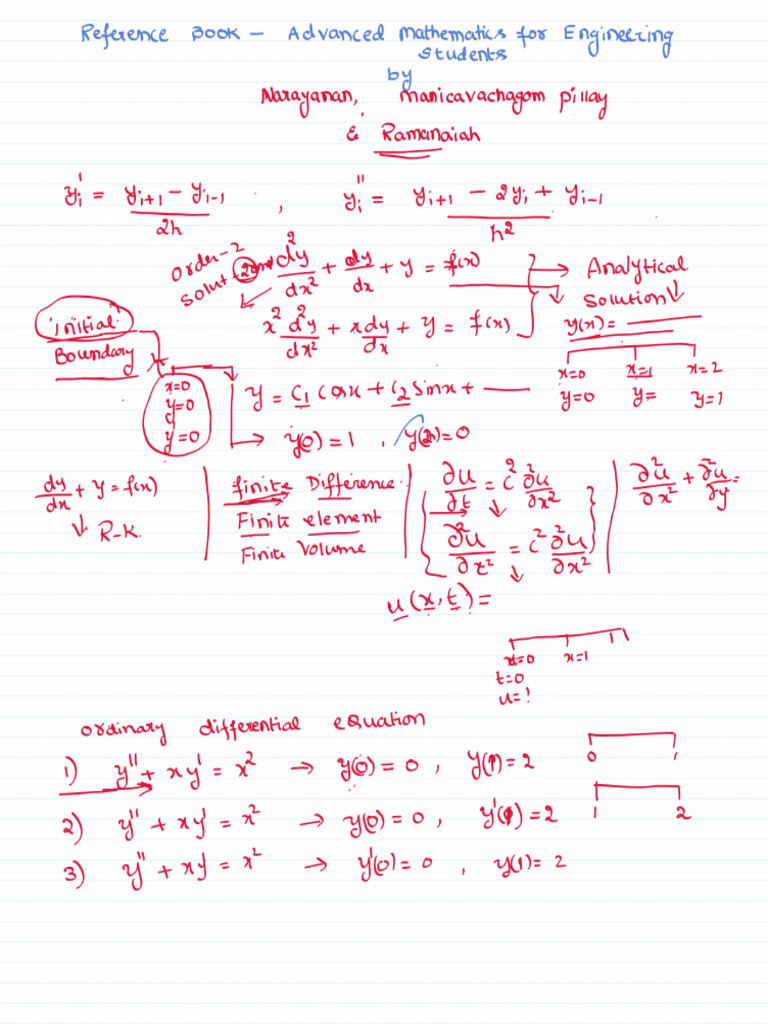 Reference Book – Advanced Mathematics for Engineering
Students
by
Narayanan, Manicavachagom Pillay
& Ramanaiah
yᵢ' = (yᵢ₊₁ – yᵢ₋₁)/2h , yᵢ'' = (yᵢ₊₁ – 2yᵢ + yᵢ₋₁)/h²
order-2
d²y/dx² + dy/dx + y = f(x) → Analytical
Solution
x² d²y/dx² + x dy/dx + y = f(x)
y(x) =
initial
Boundary
x=0 x=1 x=2
y=0 y= y=1
x=0
y=0
y=0
y = C₁ cos x + C₂ sin x +
→ y(0) = 1 , y(2) = 0
dy/dx + y = f(x)
R-K.
finite Difference
Finite element
Finite Volume
∂u/∂t = c² ∂²u/∂x²
∂²u/∂t² = c² ∂²u/∂x²
∂²u/∂x² + ∂²u/∂y =
u(x,t) =
x=0 x=1
t=0
u=?
ordinary differential equation
1) y'' + xy' = x² → y(0) = 0 , y(1) = 2
0 1
2) y'' + xy' = x² → y(0) = 0 , y'(1) = 2
1 2
3) y'' + xy' = x² → y'(0) = 0 , y(1) = 2